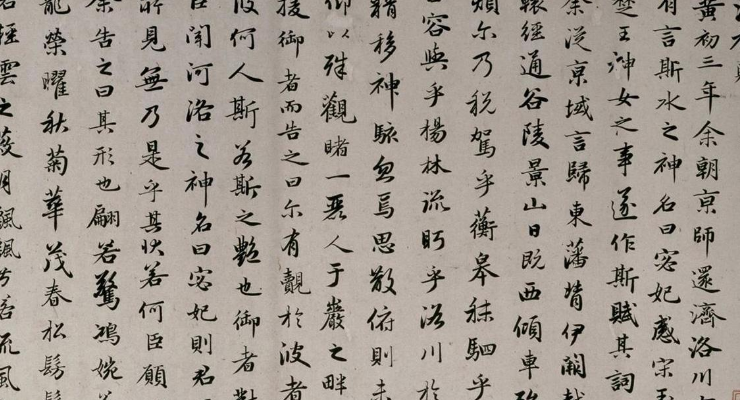 黃初三年余朝京師還濟洛川
有言斯水之神名曰宓妃感宋玉
楚王神女之事遂作斯賦其詞
余從京域言歸東藩背伊闕越
轅經通谷陵景山日既西傾車殆
煩尔乃稅駕乎蘅皋秣駟乎
容與乎楊林流眄乎洛川於
精移神駭忽焉思散俯則未
仰以殊觀睹一麗人于巖之畔
援御者而告之曰尔有覿於彼者
彼何人斯若斯之艷也御者對
臣聞河洛之神名曰宓妃則君
所見無乃是乎其狀若何臣願
余告之曰其形也翩若驚鴻婉若
龍榮曜秋菊華茂春松髣髴
若輕雲之蔽月飄飄兮若流風